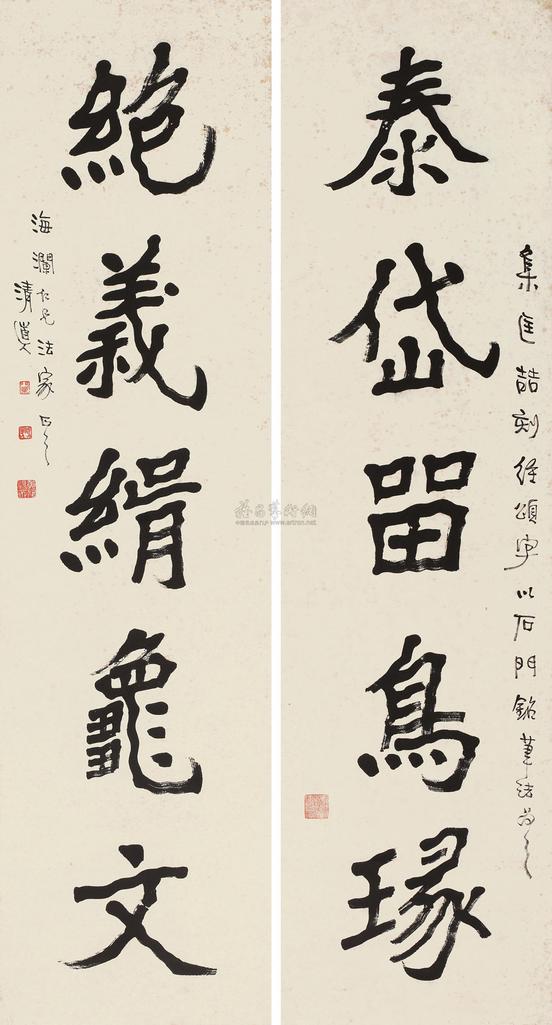 集匡喆刻经頌字以石門銘筆法为之
泰岱留鳥瑑
絕義緝龜文
海瀾仁兄法家正之
清道人
www.artron.net